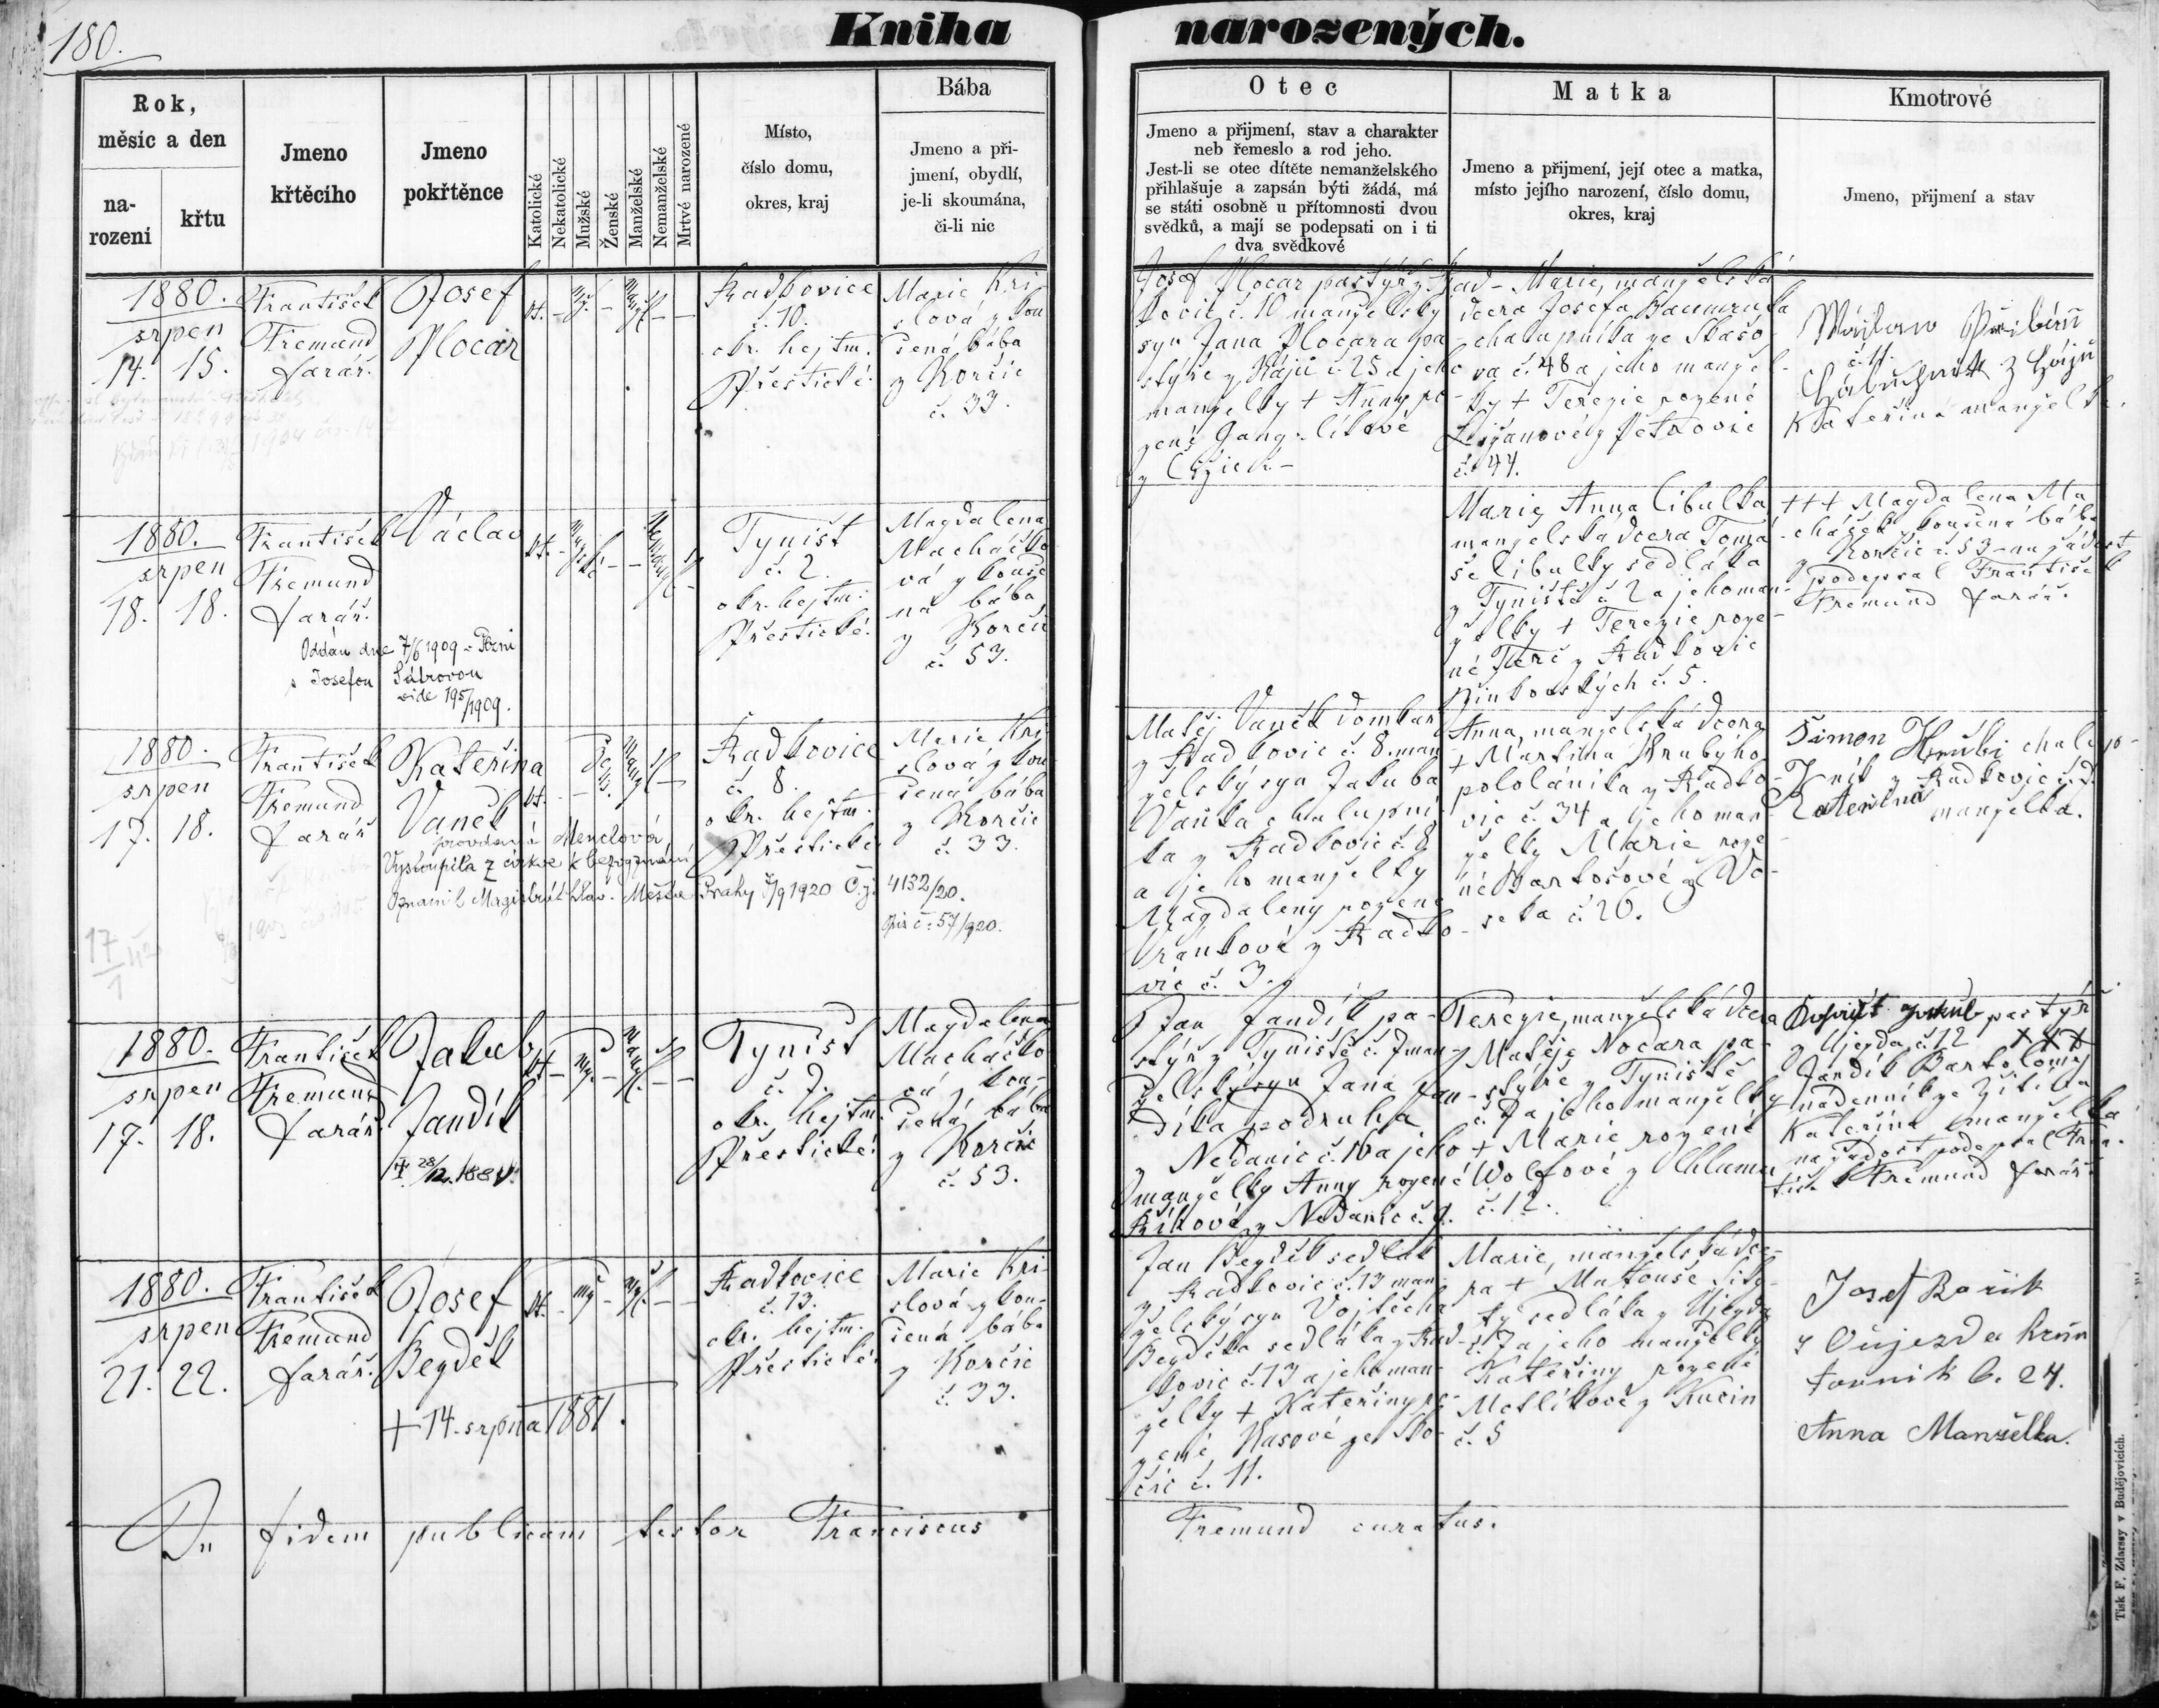 180.
Kniha narozených.
Rok,
měsíc a den
na-
rození
křtu
Jmeno
křtěcího
Jmeno
pokřtěnce
Katolické
Nekatolické
Mužské
Ženské
Manželské
Nemanželské
Mrtvé narozené
Místo,
číslo domu,
okres, kraj
Bába
Jmeno a při-
jmení, obydlí,
je-li skoumána,
či-li nic
Otec
Jmeno a přijmení, stav a charakter
neb řemeslo a rod jeho.
Jest-li se otec dítěte nemanželského
přihlašuje a zapsán býti žádá, má
se státi osobně u přítomnosti dvou
svědků, a mají se podepsati on i ti
dva svědkové
Matka
Jmeno a přijmení, její otec a matka,
místo jejího narození, číslo domu,
okres, kraj
Kmotrové
Jmeno, přijmení a stav
1880.
srpen
14. 15.
František
Fremund
farář.
Josef
Plocar
kt.
Radkovice
č. 10.
okr. hejtm.
Přestické.
Marie Kri-
slová z kou
šená bába
z Korčic
č. 33.
Josef Plocar pastýř z Rad-
kovic č. 10 manželský
syn Jana Plocara pa-
stýře z Háje č. 25 a jeho
manželky + Anny ro-
zené
Marie, manželská
dcera Josefa Baumruka
chalupníka ze Skašo-
va č. 48 a jeho manžel-
ky + Terezie rozené
z Petrovic
č. 44.
Kateřina manželka.
1880.
srpen
18. 18.
František
Fremund
farář.
Václav
Oddán dne 7/6 1909 v Plzni
s Josefou Sátrovou
vide 195/1909.
kt.
Týnišť
č. 2.
okr. hejtm.
Přestické.
Magdalena
Macháčko
vá zkouše
ná bába
z Korčic
č. 53.
Marie Anna Cibulka
manželská dcera Tomá-
še Cibulky sedláka
z Týniště č. 2 a jeho man-
želky + Terezie roze-
né z Radkovic
č. 5.
+++ Magdalena Ma
cháček koušená bába
z Korčic č. 53 na žádost
podepsal František
Fremund farář.
1880.
srpen
17. 18.
František
Fremund
farář
Kateřina
Vaněk
provdaná Menclová
Vystoupila z církve k bezvyznání
Oznámil Magistrát hlav. Města Prahy 7/9 1920 Č.j. 4152/20.
č: 57/920.
kt.
Radkovice
č. 8.
okr. hejtm.
Přestické
Marie Kri-
slová z kou
šená bába
z Korčic
č. 33.
Matěj Vaněk domkař
z Radkovic č. 8. man
želský syn Jakuba
Vaňka chalupní
ka z Radkovic č. 8
a jeho manželky
Magdaleny rozené
Vrankové z Radko-
vic č. 3.
Anna, manželská dcera
+ Martina Hrubýho
pololáníka z Radko-
vic č. 34 a jeho man-
želky Marie roze-
né Bartošové z Vo-
seka č. 26.
Šimon Hrubi chalup-
ník z Radkovic č. 7.
Kateřina manželka.
1880.
srpen
17. 18.
František
Fremund
farář
Jakub
Jandík
† 28/12. 1884.
kt.
Týnišť
č. 7.
okr. hejtm.
Přestické.
Magdalena
Macháčko
vá z kou-
šená bába
z Korčic
č. 53.
Jan Jandík pa-
stýř z Týniště č. 7 man-
želský syn Jana Jan-
díka podruha
z Nedanic č. 16 a jeho
manželky Anny rozené
Říhové z Nedanic č. 9.
Terezie, manželská dcera
Matěje Nocara pa-
stýře z Týniště
č. 7 a jeho manželky
+ Marie rozené
Wolfové z Chlumu
č. 12.
pastýř
z Újezda č. 12 +++
Jandík Bartoloměj
nádenník ze Žitína
Kateřina manželka
na žádost podepsal Fran-
tišek Fremund farář.
1880.
srpen
21. 22.
František
Fremund
farář.
Josef
Bezděk
+ 14. srpna 1881.
kt.
Radkovice
č. 13.
okr. hejtm.
Přestické.
Marie Kri-
slová z kou-
šená bába
z Korčic
č. 33.
Jan Bezděk sedlák
z Radkovic č. 13 man-
želský syn Vojtěcha
Bezděka sedláka z Rad-
kovic č. 13 a jeho man-
želky + Kateřiny ro-
zené Kasové ze Sko-
čic č. 11.
Marie, manželská dce-
ra + Matouše Sit-
ky sedláka z Újezda
č. 7 a jeho manželky
Kateřiny rozené
Motlíkové z Kucin
č. 5
Josef Bořík
z Oujezda
č. 24.
Anna Manželka.
In fidem publicam testor Franciscus Fremund curatus.
Tisk F. Zdarssy v Budějovicích.